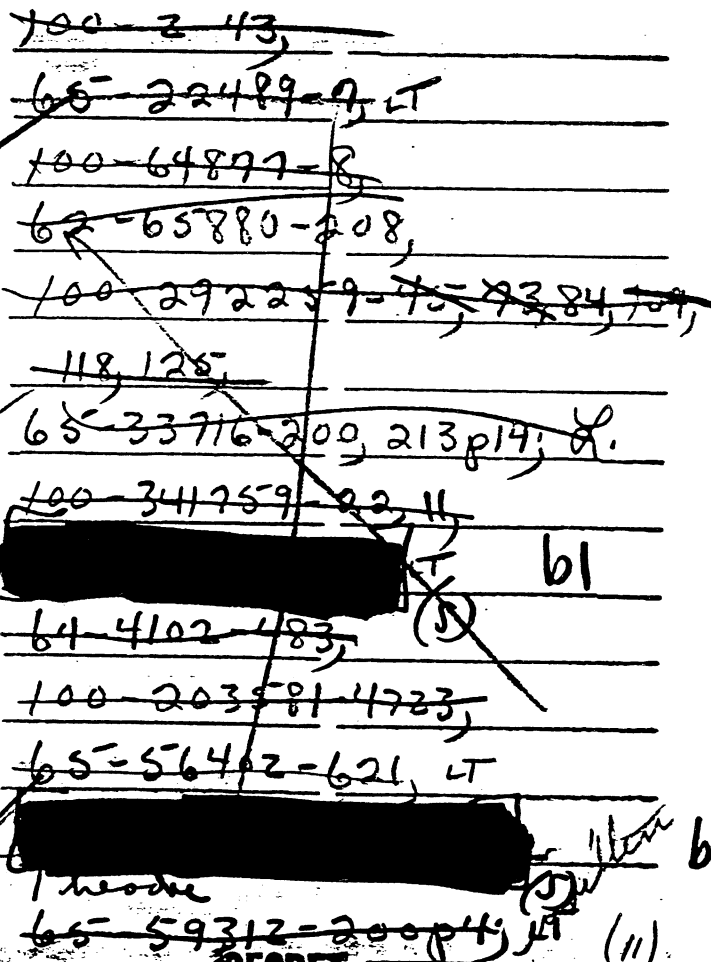 100-2-43,
65-22489-7, LT
100-64877-8,
62-65880-208,
100-292259-45, 73 84, 109,
118, 125,
65-33716-200, 213 p14; L.
100-341759-22, 11,
LT b1
(S)
64-4102-483,
100-203581-4723,
65-56402-621, LT
b
(S)
65-59312-200 p4; LT
(11)
SECRET